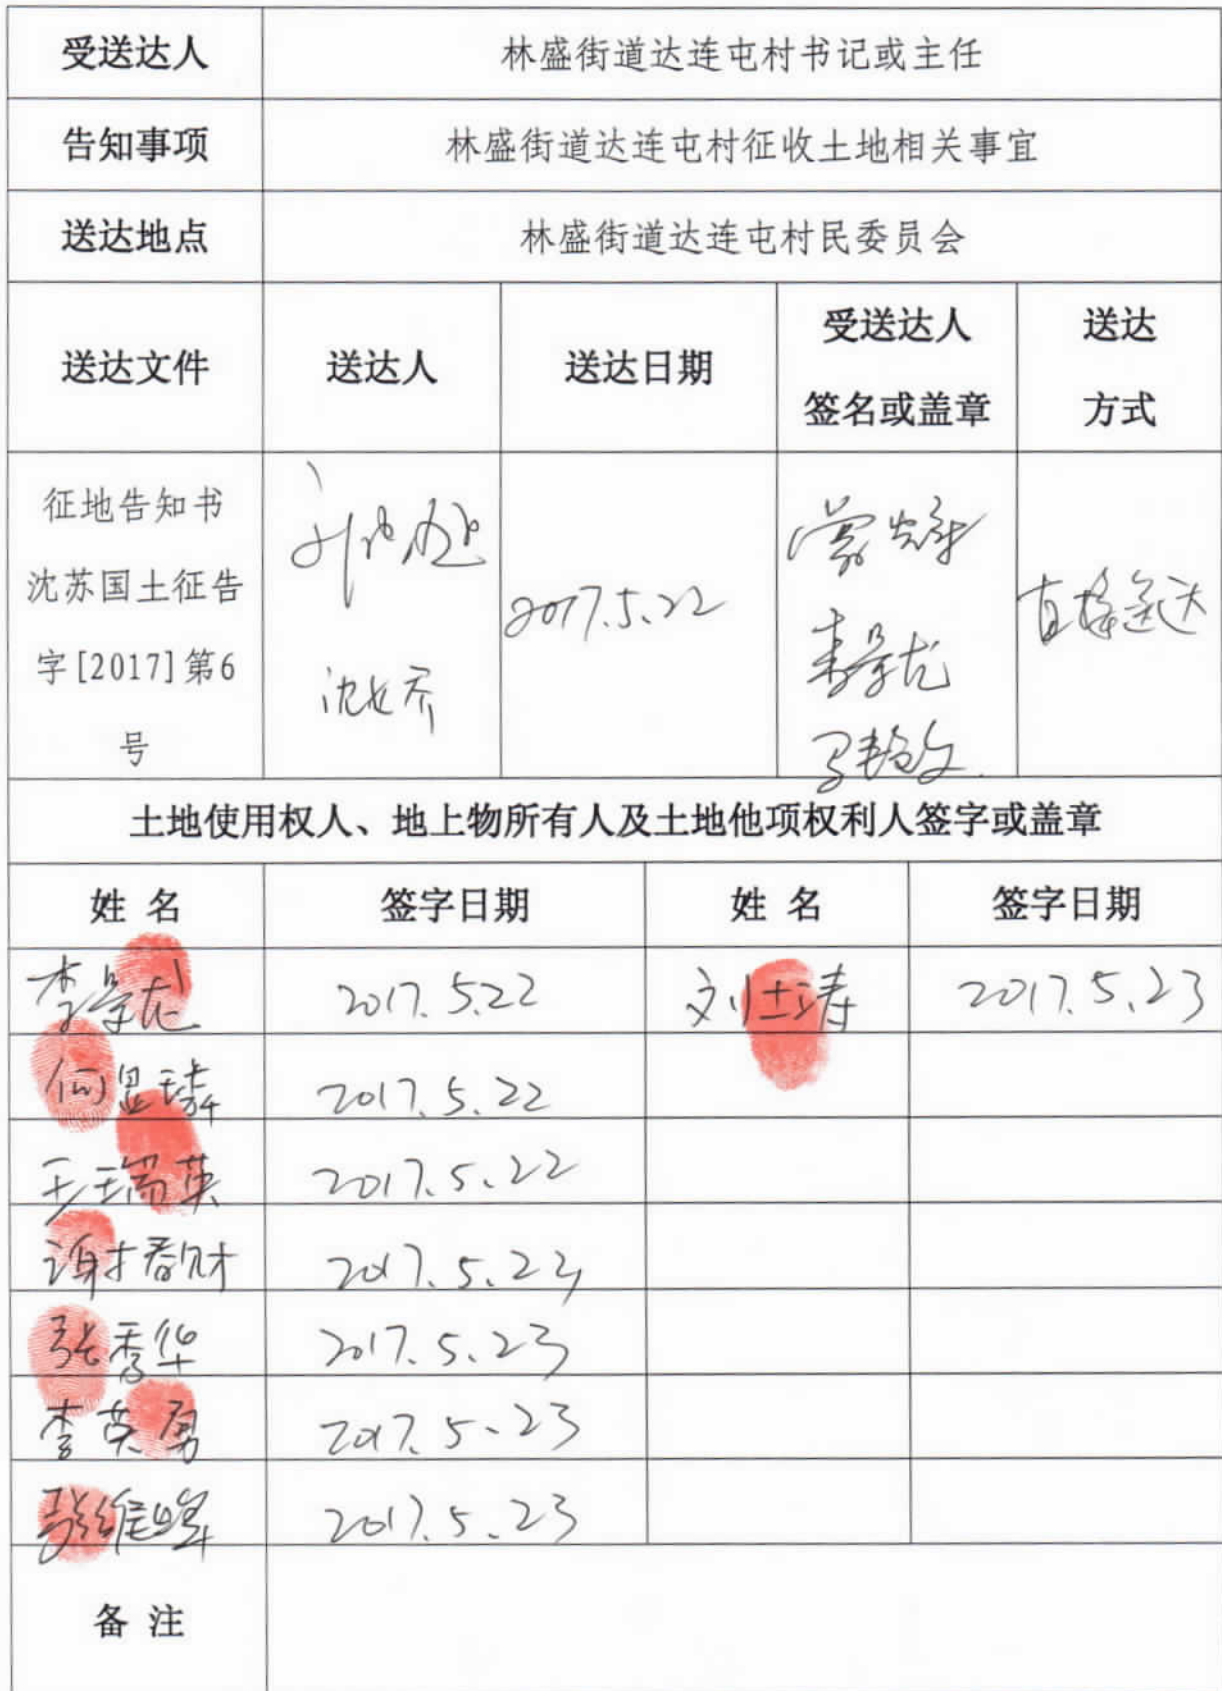 受送达人 林盛街道达连屯村书记或主任
告知事项 林盛街道达连屯村征收土地相关事宜
送达地点 林盛街道达连屯村民委员会
送达文件 送达人 送达日期 受送达人 送达
签名或盖章 方式
征地告知书
沈苏国土征告
字[2017]第6
号
2017.5.22
李景龙
直接送达
土地使用权人、地上物所有人及土地他项权利人签字或盖章
姓 名 签字日期 姓 名 签字日期
李景龙 2017.5.22 刘仕涛 2017.5.23
何显璘 2017.5.22
王瑞英 2017.5.22
谢春财 2017.5.23
张秀华 2017.5.23
李英勇 2017.5.23
张维峰 2017.5.23
备 注